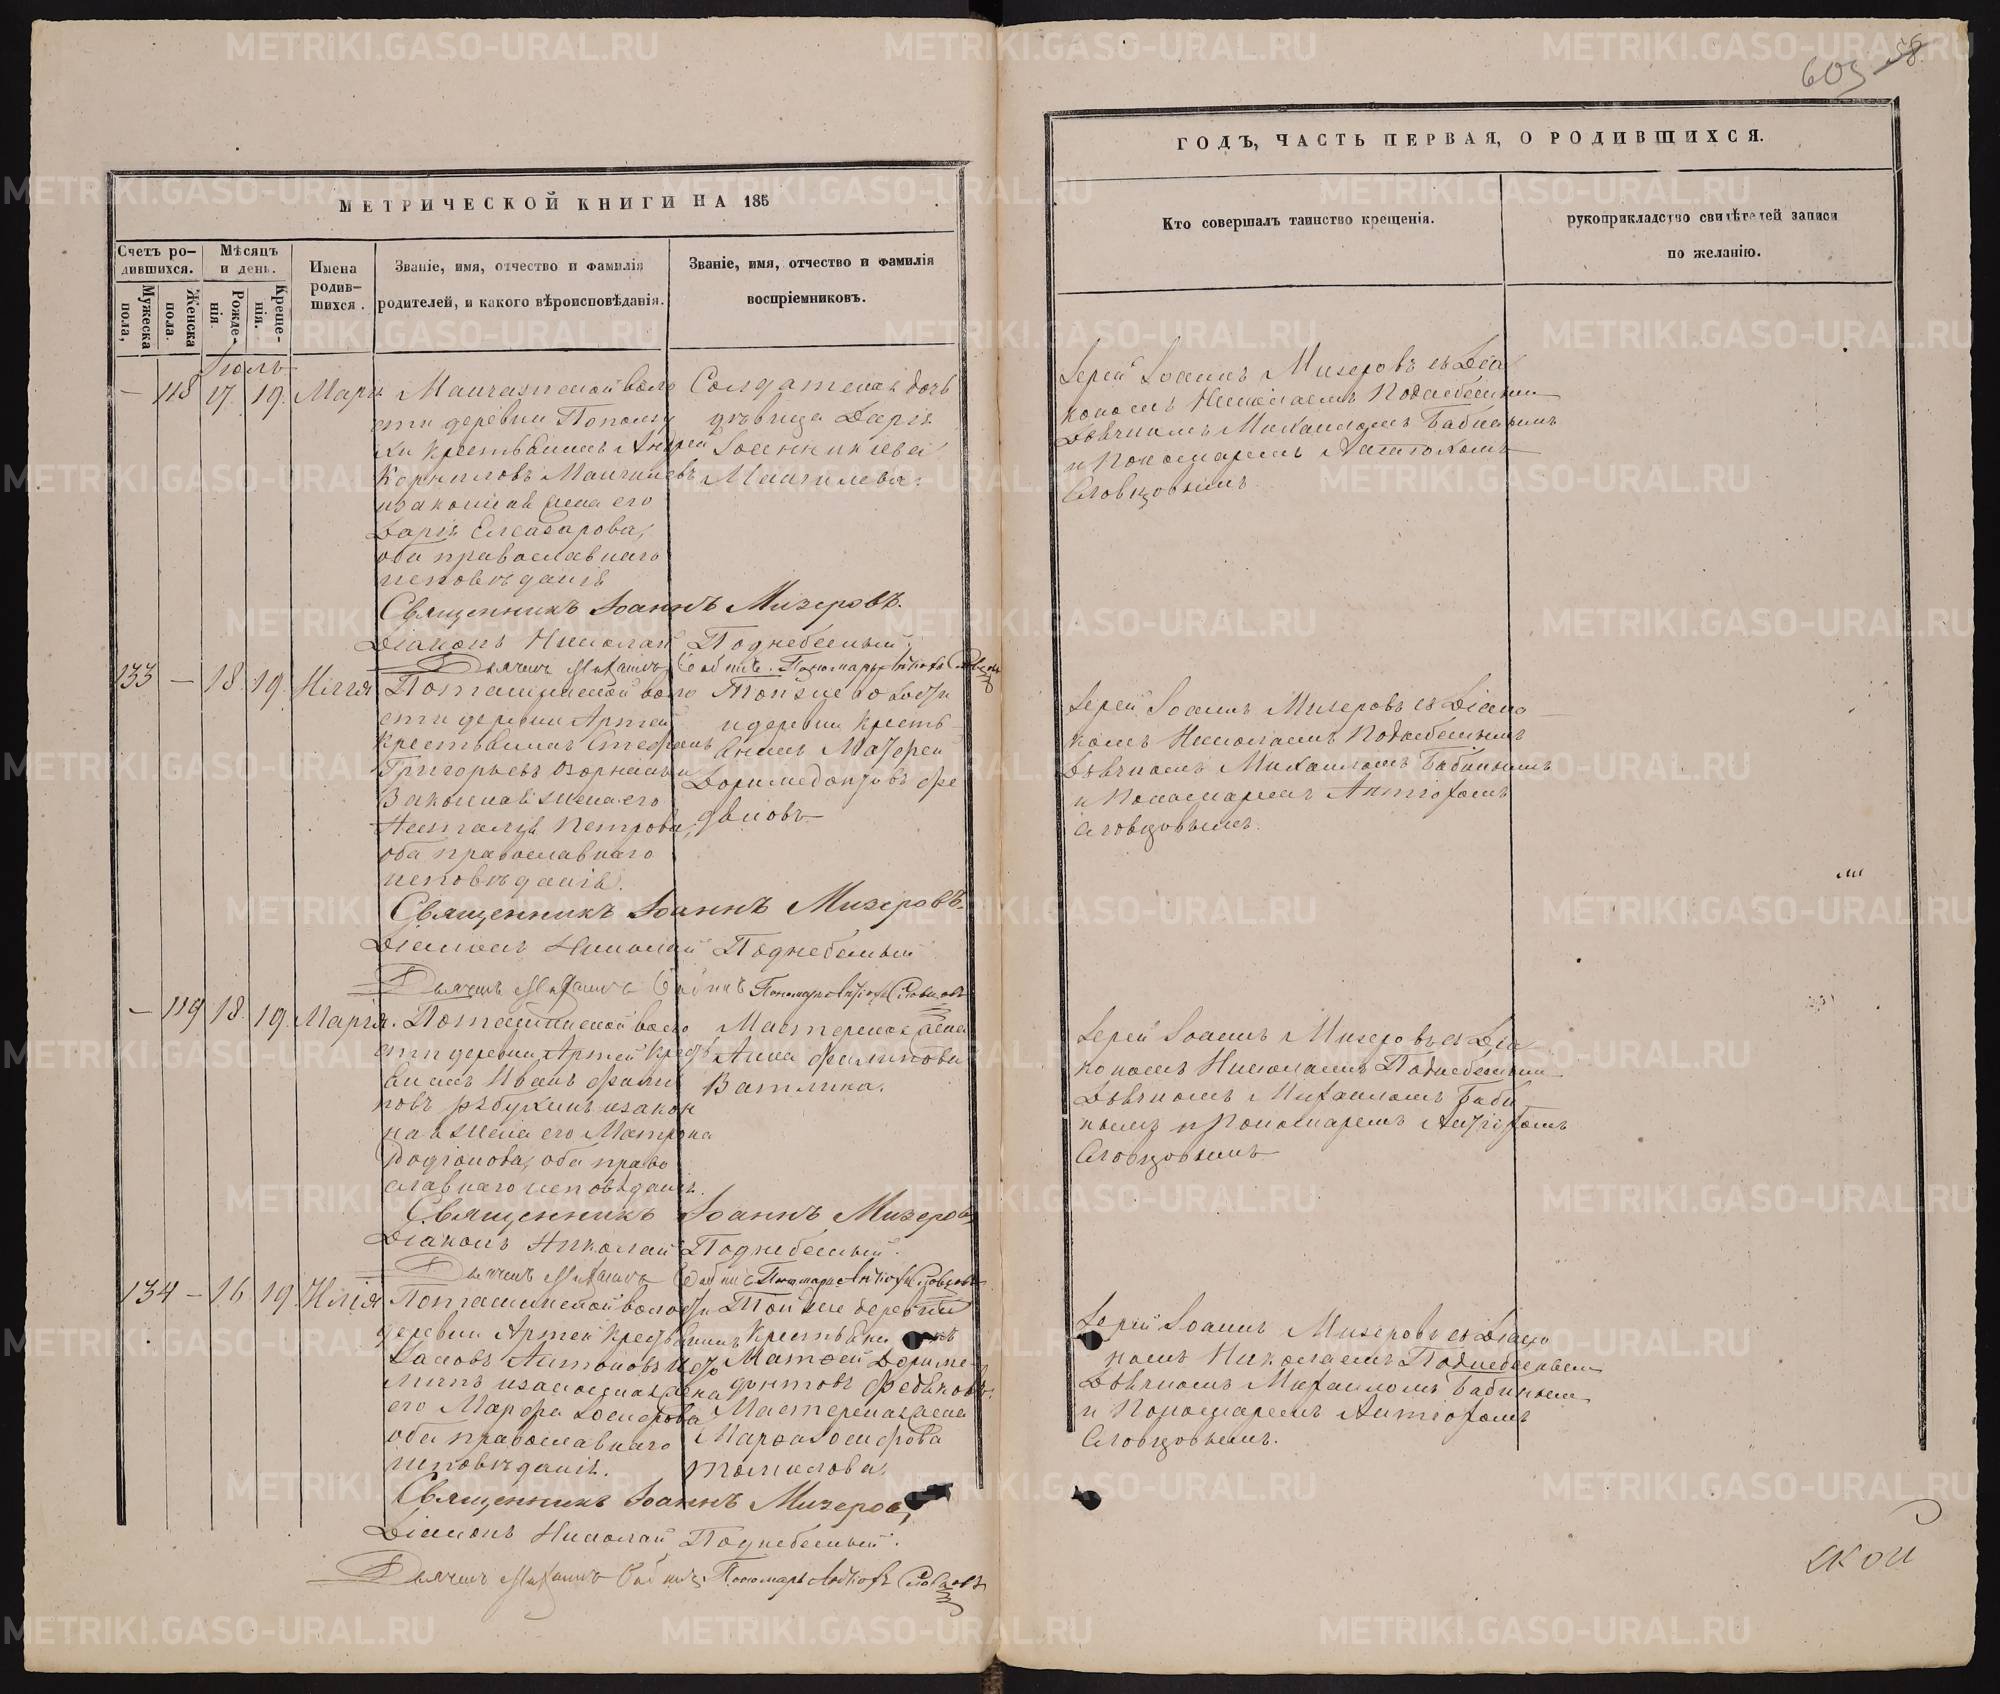 603 58
МЕТРИЧЕСКОЙ КНИГИ НА 185
Счетъ родившихся.
Мужеска пола,
Женска пола.
Мѣсяцъ и день.
Рожденія.
Крещенія.
Имена родившихся.
Званіе, имя, отчество и фамилія
родителей, и какого вѣроисповѣданія.
Званіе, имя, отчество и фамилія
воспріемниковъ.
Іюль
— 118 17. 19.
деревни
Андрей
Корниловъ
и законная жена его
Дарія Елеазарова,
оба православнаго
исповѣданія
Солдатская дочь
дѣвица Дарія
Священникъ Іоаннъ Мизеровъ.
Діаконъ Николай Поднебесный.
Дьячекъ Михаилъ Бабинъ. Пономарь Антіохъ Словцовъ
133 — 18. 19. Илія
Поташинской воло
сти деревни Артей
крестьянинъ Стефанъ
Григорьевъ
Законная жена его
Наталія Петрова,
оба православнаго
исповѣданія.
Той же волости
и деревни кресть
янинъ Матфей
Доримедонтовъ Фе
дяковъ
Священникъ Іоаннъ Мизеровъ.
Діаконъ Николай Поднебесный
Дьячекъ Михаилъ Бабинъ Пономарь Антіохъ Словцовъ
— 119 18. 19. Марія.
Поташинской воло
сти деревни Артей кресть
янинъ Иванъ Филип
повъ и закон
ная жена его Матрона
Родіонова, оба право
славнаго исповѣданія.
Мастерская жена
Анна Филипова
Священникъ Іоаннъ Мизеровъ
Діаконъ Николай Поднебесный.
Дьячекъ Михаилъ Бабинъ Пономарь Антіохъ Словцовъ
134 — 16 19 Илія
Поташинской волости
деревни Артей крестьянинъ
Іаковъ Антоновъ
и законная жена
его Марфа Іосифова
оба православнаго
исповѣданія.
Той же деревни
крестьянинъ
Матфей Дориме
донтовъ Федяковъ.
Мастерская жена
Марфа Іосифова
Томилова.
Священникъ Іоаннъ Мизеровъ
Діаконъ Николай Поднебесный.
Дьячекъ Михаилъ Бабинъ. Пономарь Антіохъ Словцовъ
ГОДЪ, ЧАСТЬ ПЕРВАЯ, О РОДИВШИХСЯ.
Кто совершалъ таинство крещенія.
рукоприкладство свидѣтелей записи
по желанію.
Іерей Іоаннъ Мизеровъ съ Діа
кономъ Николаемъ Поднебеснымъ
Дьячкомъ Михаиломъ Бабинымъ
и Пономаремъ Антіохомъ
Словцовымъ
Іерей Іоаннъ Мизеровъ съ Діако
номъ Николаемъ Поднебеснымъ
Дьячкомъ Михаиломъ Бабинымъ
и Пономаремъ Антіохомъ
Словцовымъ.
Іерей Іоаннъ Мизеровъ съ Діа
кономъ Николаемъ Поднебеснымъ
Дьячкомъ Михаиломъ Баби
нымъ и Пономаремъ Антіохомъ
Словцовымъ
Іерей Іоаннъ Мизеровъ съ Діако
номъ Николаемъ Поднебеснымъ
Дьячкомъ Михаиломъ Бабинымъ
и Пономаремъ Антіохомъ
Словцовымъ.
ской
METRIKI.GASO-URAL.RU